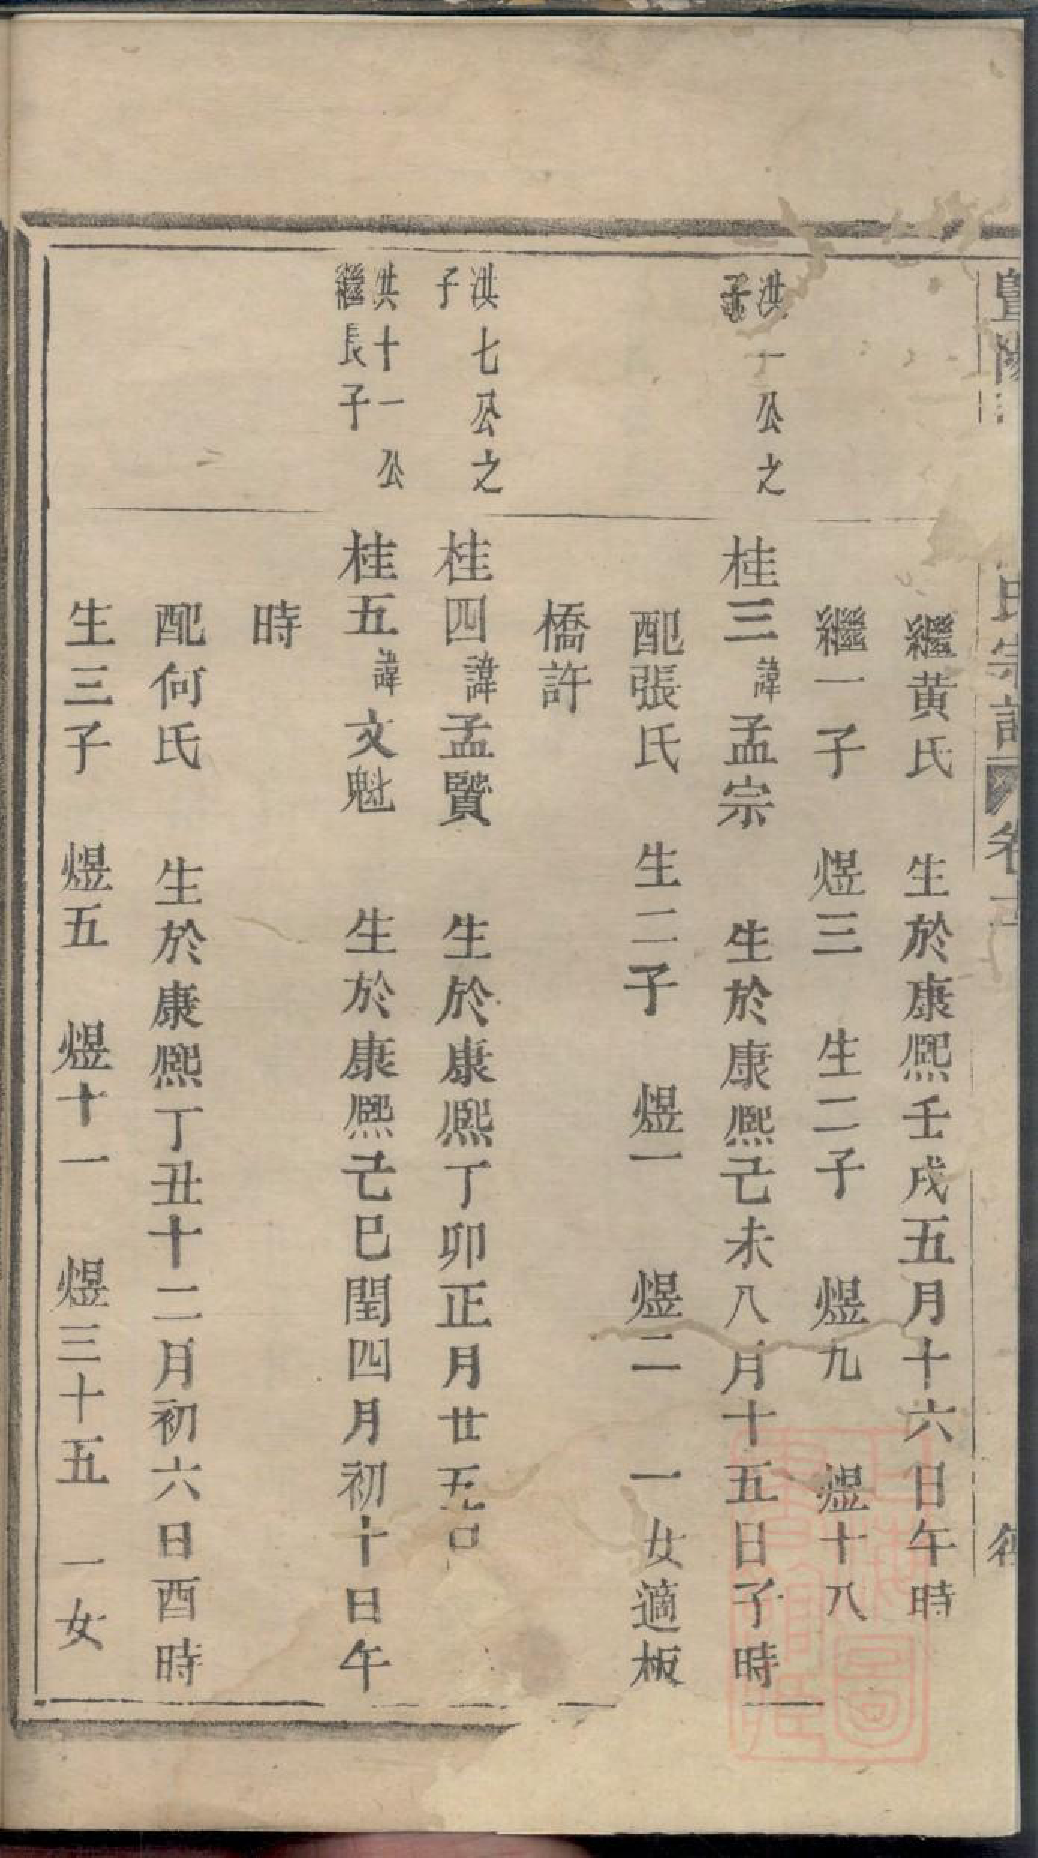 暨陽
氏宗譜
卷
繼黄氏 生於康熙壬戌五月十六日午時
繼一子 煜三 生二子 煜九 煜十八
洪一公之
子
桂三諱孟宗 生於康熙己未八月十五日子時
配張氏 生二子 煜一 煜二 一女適板
橋許
洪七公之
子
桂四諱孟賢 生於康熙丁卯正月廿五日
洪十一公
繼長子
桂五諱文魁 生於康熙己巳閏四月初十日午
時
配何氏 生於康熙丁丑十二月初六日酉時
生三子 煜五 煜十一 煜三十五 一女